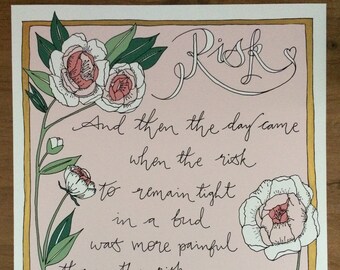 Risk
And then the day came
when the risk
to remain tight
in a bud
was more painful
than the risk